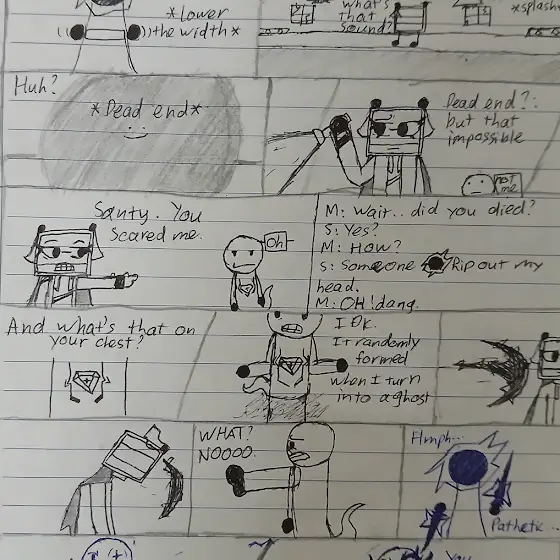 *Lower
the width*
what's
that
sound?
*splash
Huh?
*Dead end*
Dead end?:
but that
impossible
not
me
Santy. You
Scared me.
Oh
M: Wait.. did you died?
S: Yes?
M: How?
S: Someone Rip out my
head.
M: OH! dang.
And what's that on
your clest?
I DK.
It randomly
formed
when I turn
into a ghost
WHAT?
NOOOO.
Hmph..
Pathetic...
You